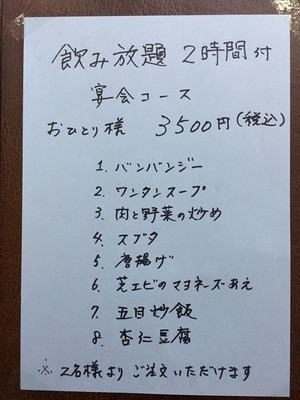 飲み放題 2時間付
宴会コース
おひとり様 3500円(税込)
1. バンバンジー
2. ワンタンスープ
3. 肉と野菜の炒め
4. スブタ
5. 唐揚げ
6. 芝エビのマヨネーズあえ
7. 五目炒飯
8. 杏仁豆腐
※ 2名様よりご注文いただけます